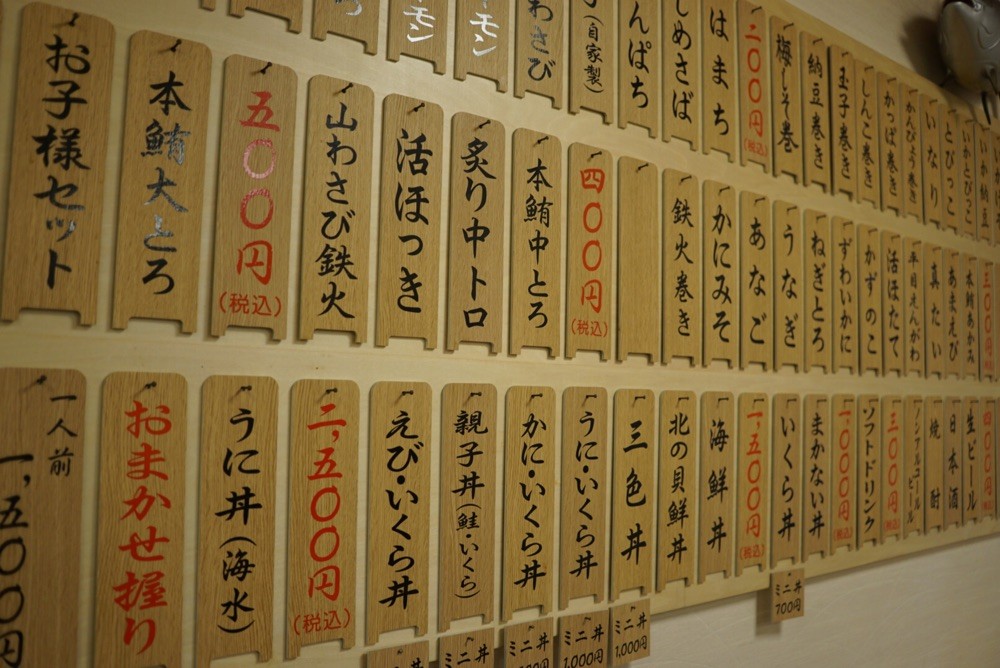 いか納豆
いかとびっこ
とびっこ
いなり
かんぴょう巻き
かっぱ巻き
しんこ巻き
玉子巻き
納豆巻き
梅しそ巻
二〇〇円
(税込)
はまち
しめさば
んぱち
(自家製)
わさび
モン
モン
三〇〇円
本鮪あかみ
あまえび
真たい
平目えんがわ
活ほたて
かずのこ
ずわいかに
ねぎとろ
うなぎ
あなご
かにみそ
鉄火巻き
四〇〇円
(税込)
本鮪中とろ
炙り中トロ
活ほっき
山わさび鉄火
五〇〇円
(税込)
本鮪大とろ
お子様セット
四〇〇円
生ビール
日本酒
焼酎
ノンアルコール
ビール
三〇〇円
(税込)
ソフトドリンク
一,〇〇〇円
(税込)
まかない丼
いくら丼
一,五〇〇円
(税込)
海鮮丼
北の貝鮮丼
三色丼
うに・いくら丼
かに・いくら丼
親子丼(鮭・いくら)
えび・いくら丼
二,五〇〇円
(税込)
うに丼(海水)
おまかせ握り
一人前
一,五〇〇円
ミニ丼
700円
ミニ丼
1,000円
ミニ丼
1,000円
ミニ丼
ミニ丼